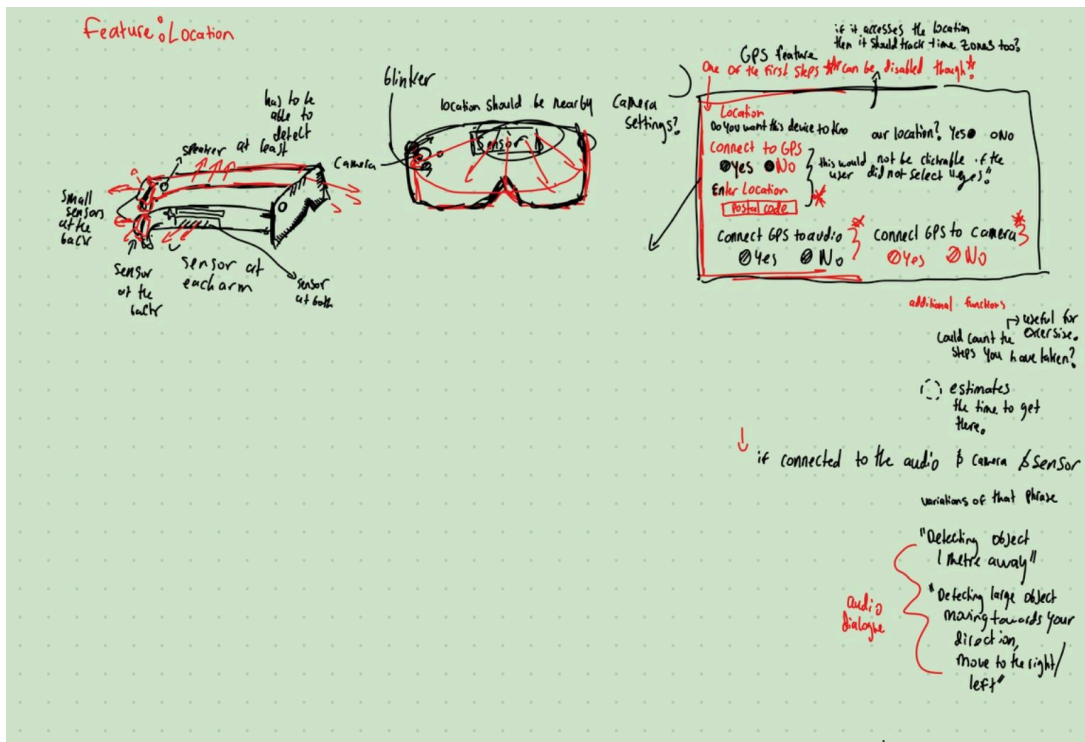 Feature: Location
has to be
able to
detect
at least
speaker
small
sensors
at the
back
sensor
at the
back
sensor at
each arm
sensor
at both
blinker
location should be nearby
Camera
sensor
Camera
settings?
if it accesses the location
then it should track time zones too?
GPS feature
One of the first steps ** can be disabled though *
Location
Do you want this device to kno our location? Yes No
Connect to GPS
Yes No
this would not be clickable if the
user did not select "yes".
Enter Location
Postal code
Connect GPS to audio
Yes No
Connect GPS to camera
Yes No
additional functions
useful for
excersize.
Could count the
steps you have taken?
estimates
the time to get
there.
if connected to the audio & camera & sensor
variations of that phrase
audio
dialogue
"Detecting object
1 metre away"
"Detecting large object
moving towards your
direction,
move to the right/
left"